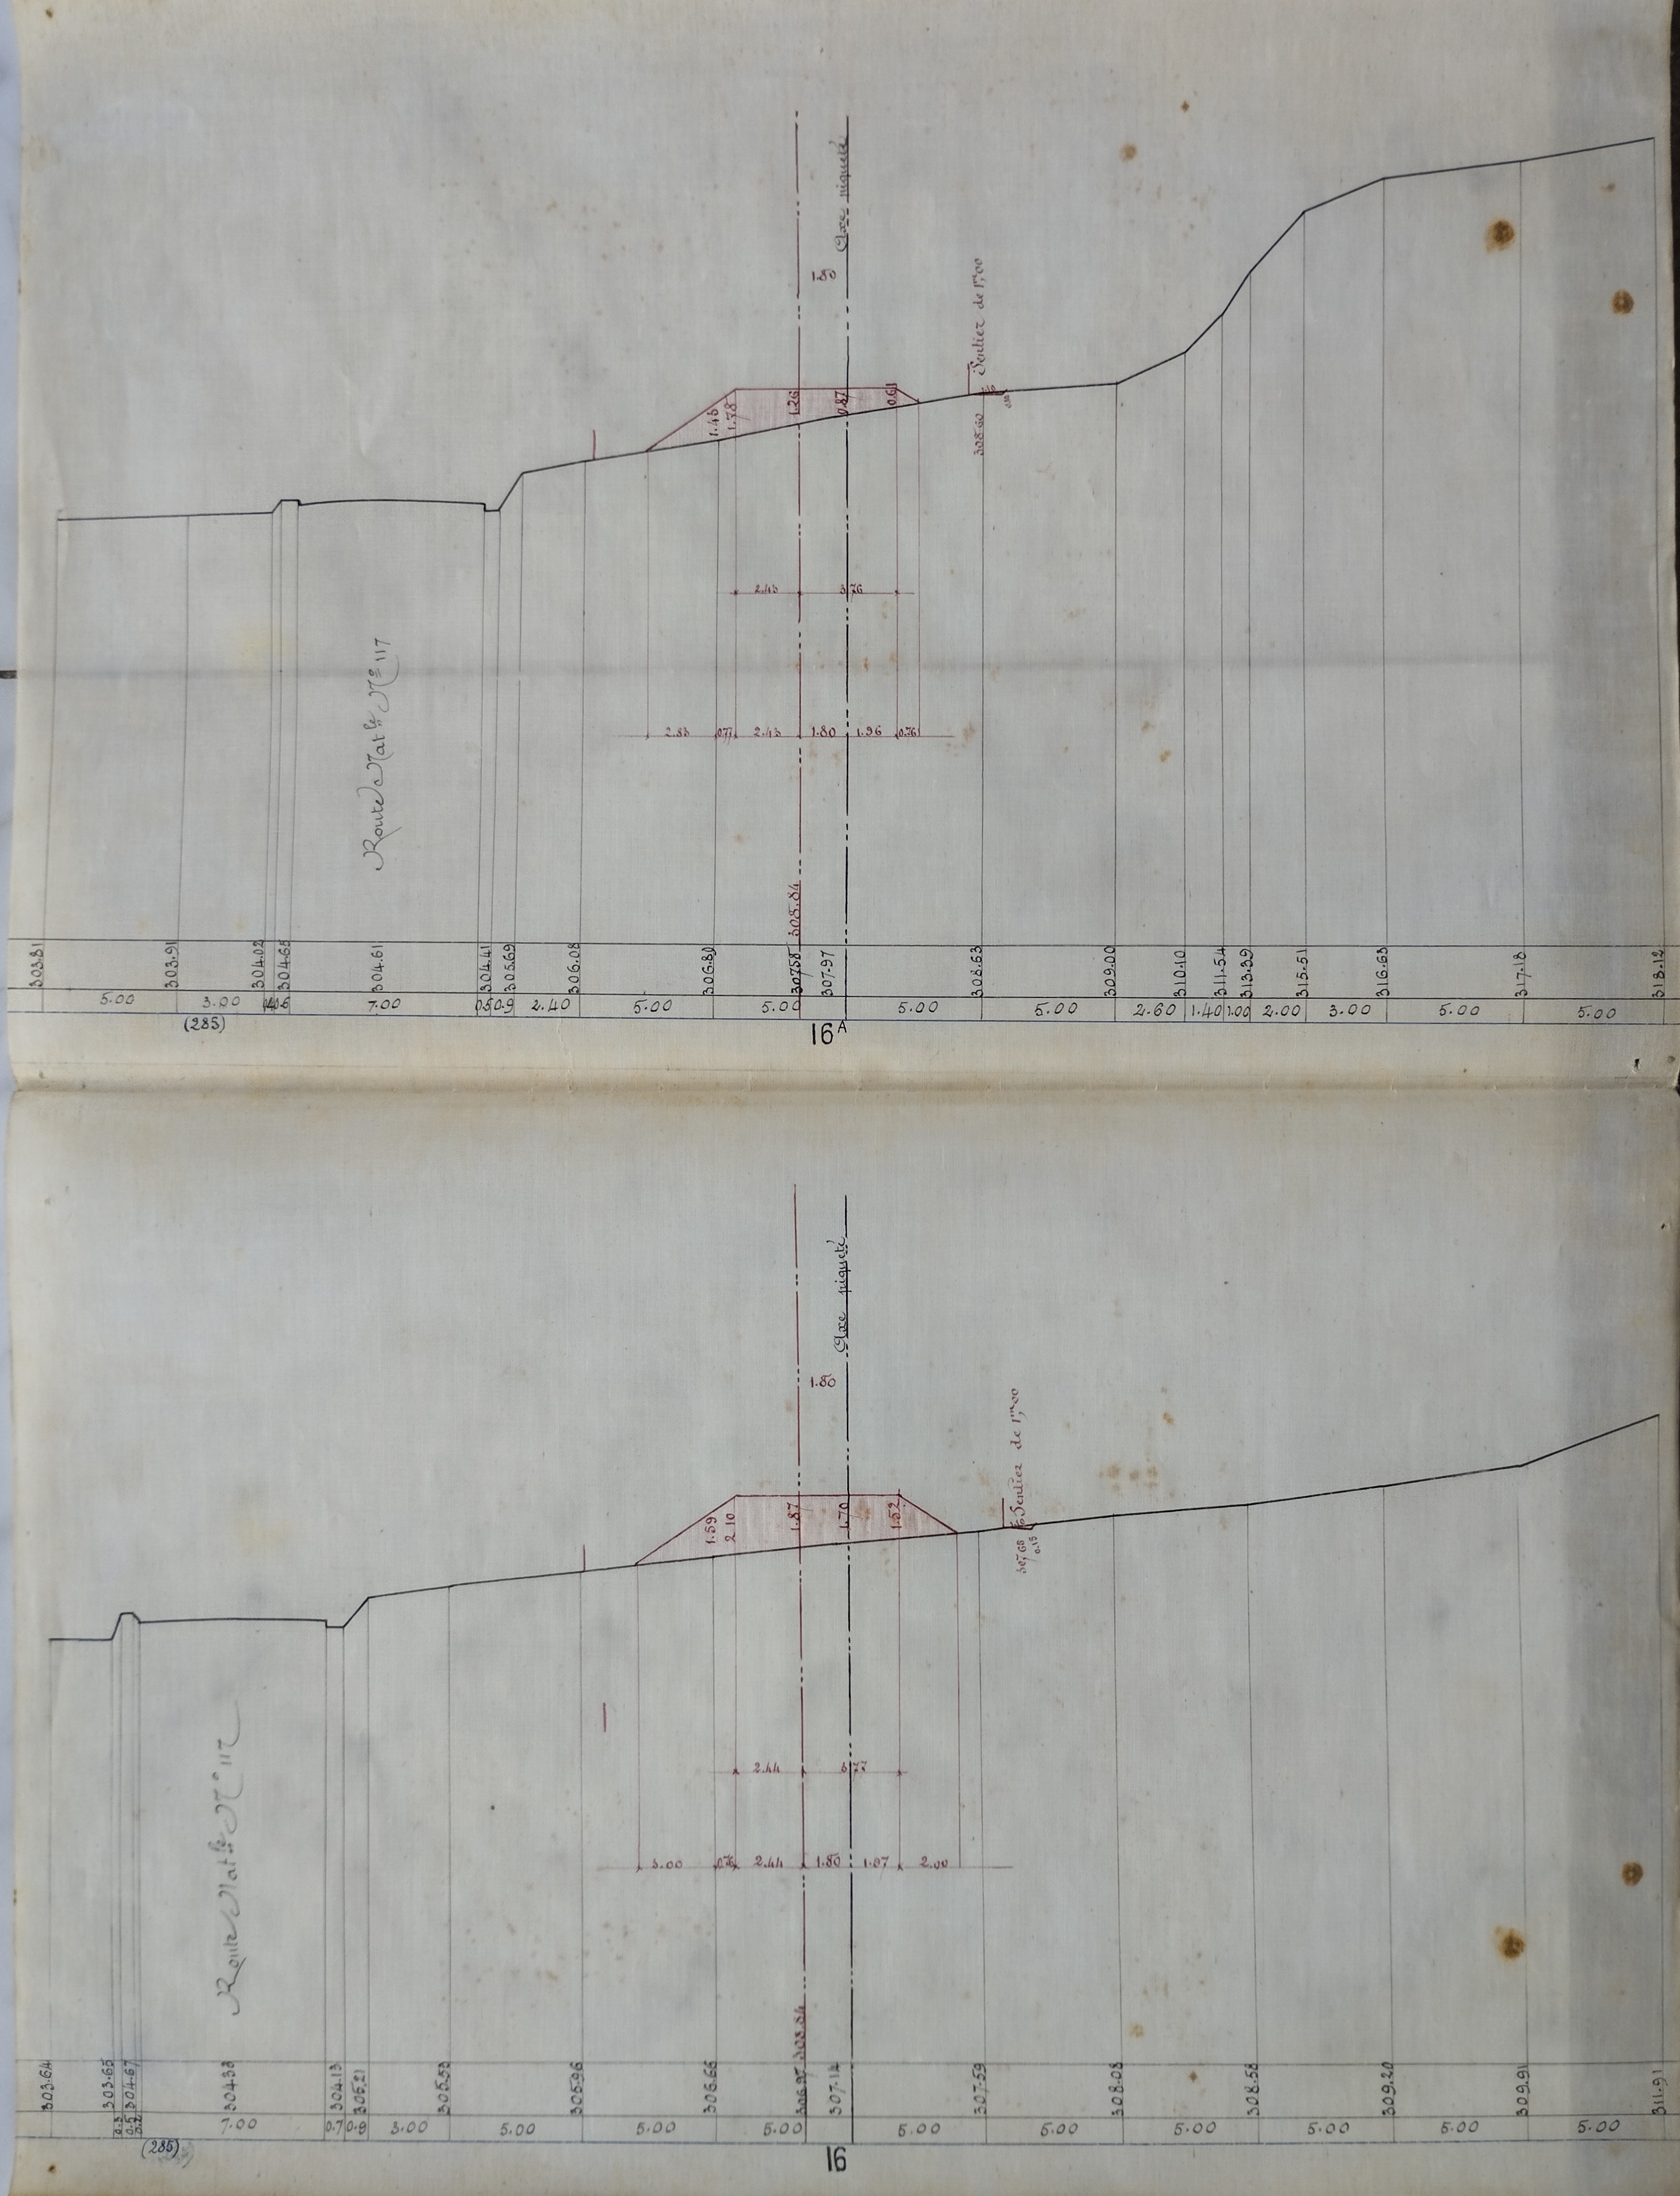 Axe piqueté
Sentier de 1,m00
308.60
1.45
1.78
1.26
0.87
0.61
2.43 3.76
Route Natle No 117
2.83 0.77 2.43 1.80 1.96 0.76
308.84
303.81 303.91 304.02 304.65 304.61 304.41 305.69 306.08 306.80 307.58 307.97 308.63 309.00 310.10 311.54 313.39 315.51 316.63 317.18 318.12
5.00 3.00 7.00 0.9 2.40 5.00 5.00 5.00 5.00 2.60 1.40 1.00 2.00 3.00 5.00 5.00
(285)
16A
Axe piqueté
1.80
Sentier de 1,m00
307.68
0.15
1.59
2.10
1.87
1.70
1.52
Route Natle No 117
2.44 3.77
3.00 0.76 2.44 1.80 1.97 2.00
308.84
303.64 303.65 304.67 304.38 304.13 305.21 305.53 305.96 306.66 306.97 307.14 307.59 308.08 308.58 309.20 309.91 311.91
0.3 0.5 7.00 0.7 0.9 3.00 5.00 5.00 5.00 5.00 5.00 5.00 5.00 5.00 5.00
(285)
16